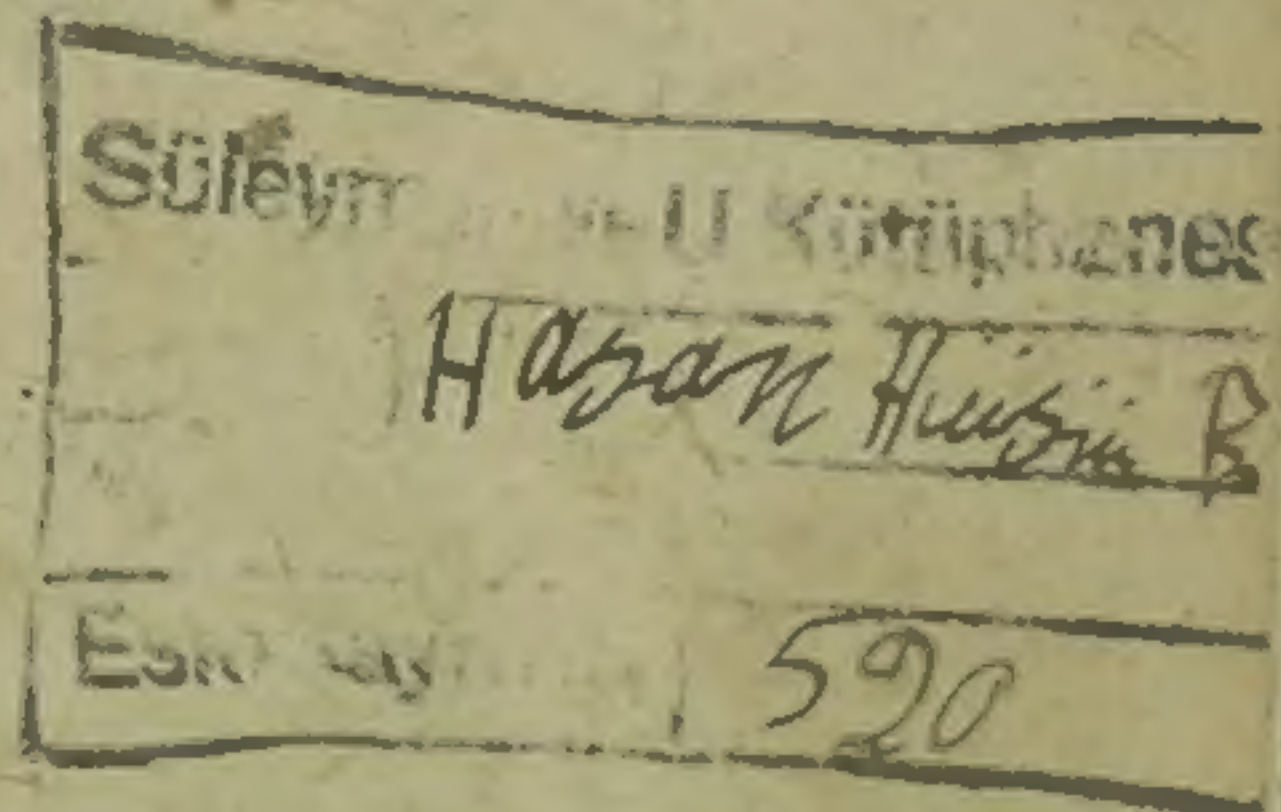 Süleym U Kütüphanes
Hasan Hüsnü P
Eski Kayı
590